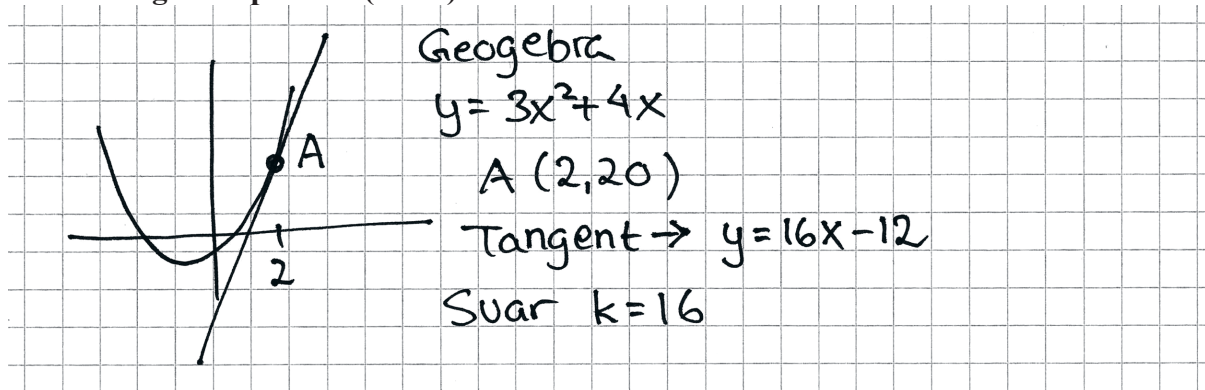 Geogebra
y = 3x²+4x
A
A (2,20)
Tangent → y = 16x-12
2
Svar k = 16